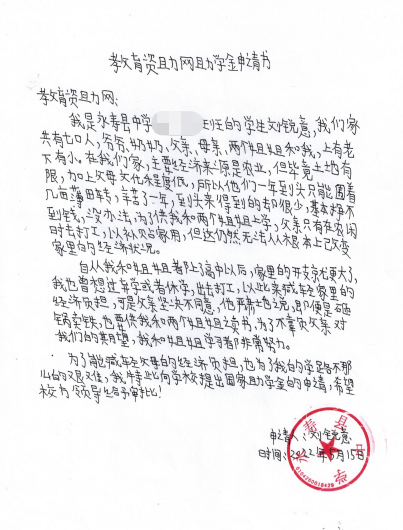 教育资助网助学金申请书
教育资助网:
我是永寿县中学 班的学生刘锐意,我们家
共有七口人,爷爷,奶奶,父亲,母亲,两个姐姐和我,上有老
下有小。在我们家,主要经济来源是农业,但毕竟土地有
限,加上父母文化程度低,所以他们一年到头只能围着
几亩薄田转,辛苦一年,到头来得到的却很少,基本挣不
到钱,没办法,为了供我和两个姐姐上学,父亲只有在农闲
时去打工,以补贴家用,但这仍然无法从根本上改变
家里的经济状况。
自从我和姐姐都上了高中以后,家里的开支就更大了,
我也曾想过辍学或者休学,出去打工,以此来减轻家里的
经济负担,可是父亲坚决不同意,他严肃地说,即便是砸
锅卖铁,也要供我和两个姐姐读书,为了不辜负父亲对
我们的期望,我和姐姐学习都非常努力。
为了能减轻父母的经济负担,也为了我的学路不那
么的艰难,我特此向学校提出国家助学金的申请,希望
校 领导给予审批!
申请人:刘锐意
时间:2022年5月15日